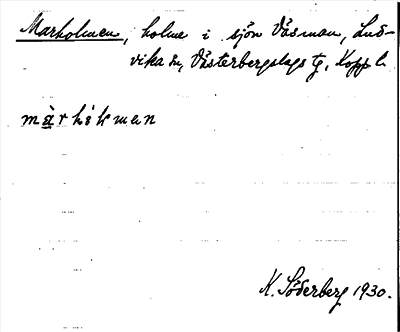 Marholmen, holme i sjön Väsman, Lud-
vika sn, Västerbergslags tg, Kopp l.
K. Söderberg 1930.